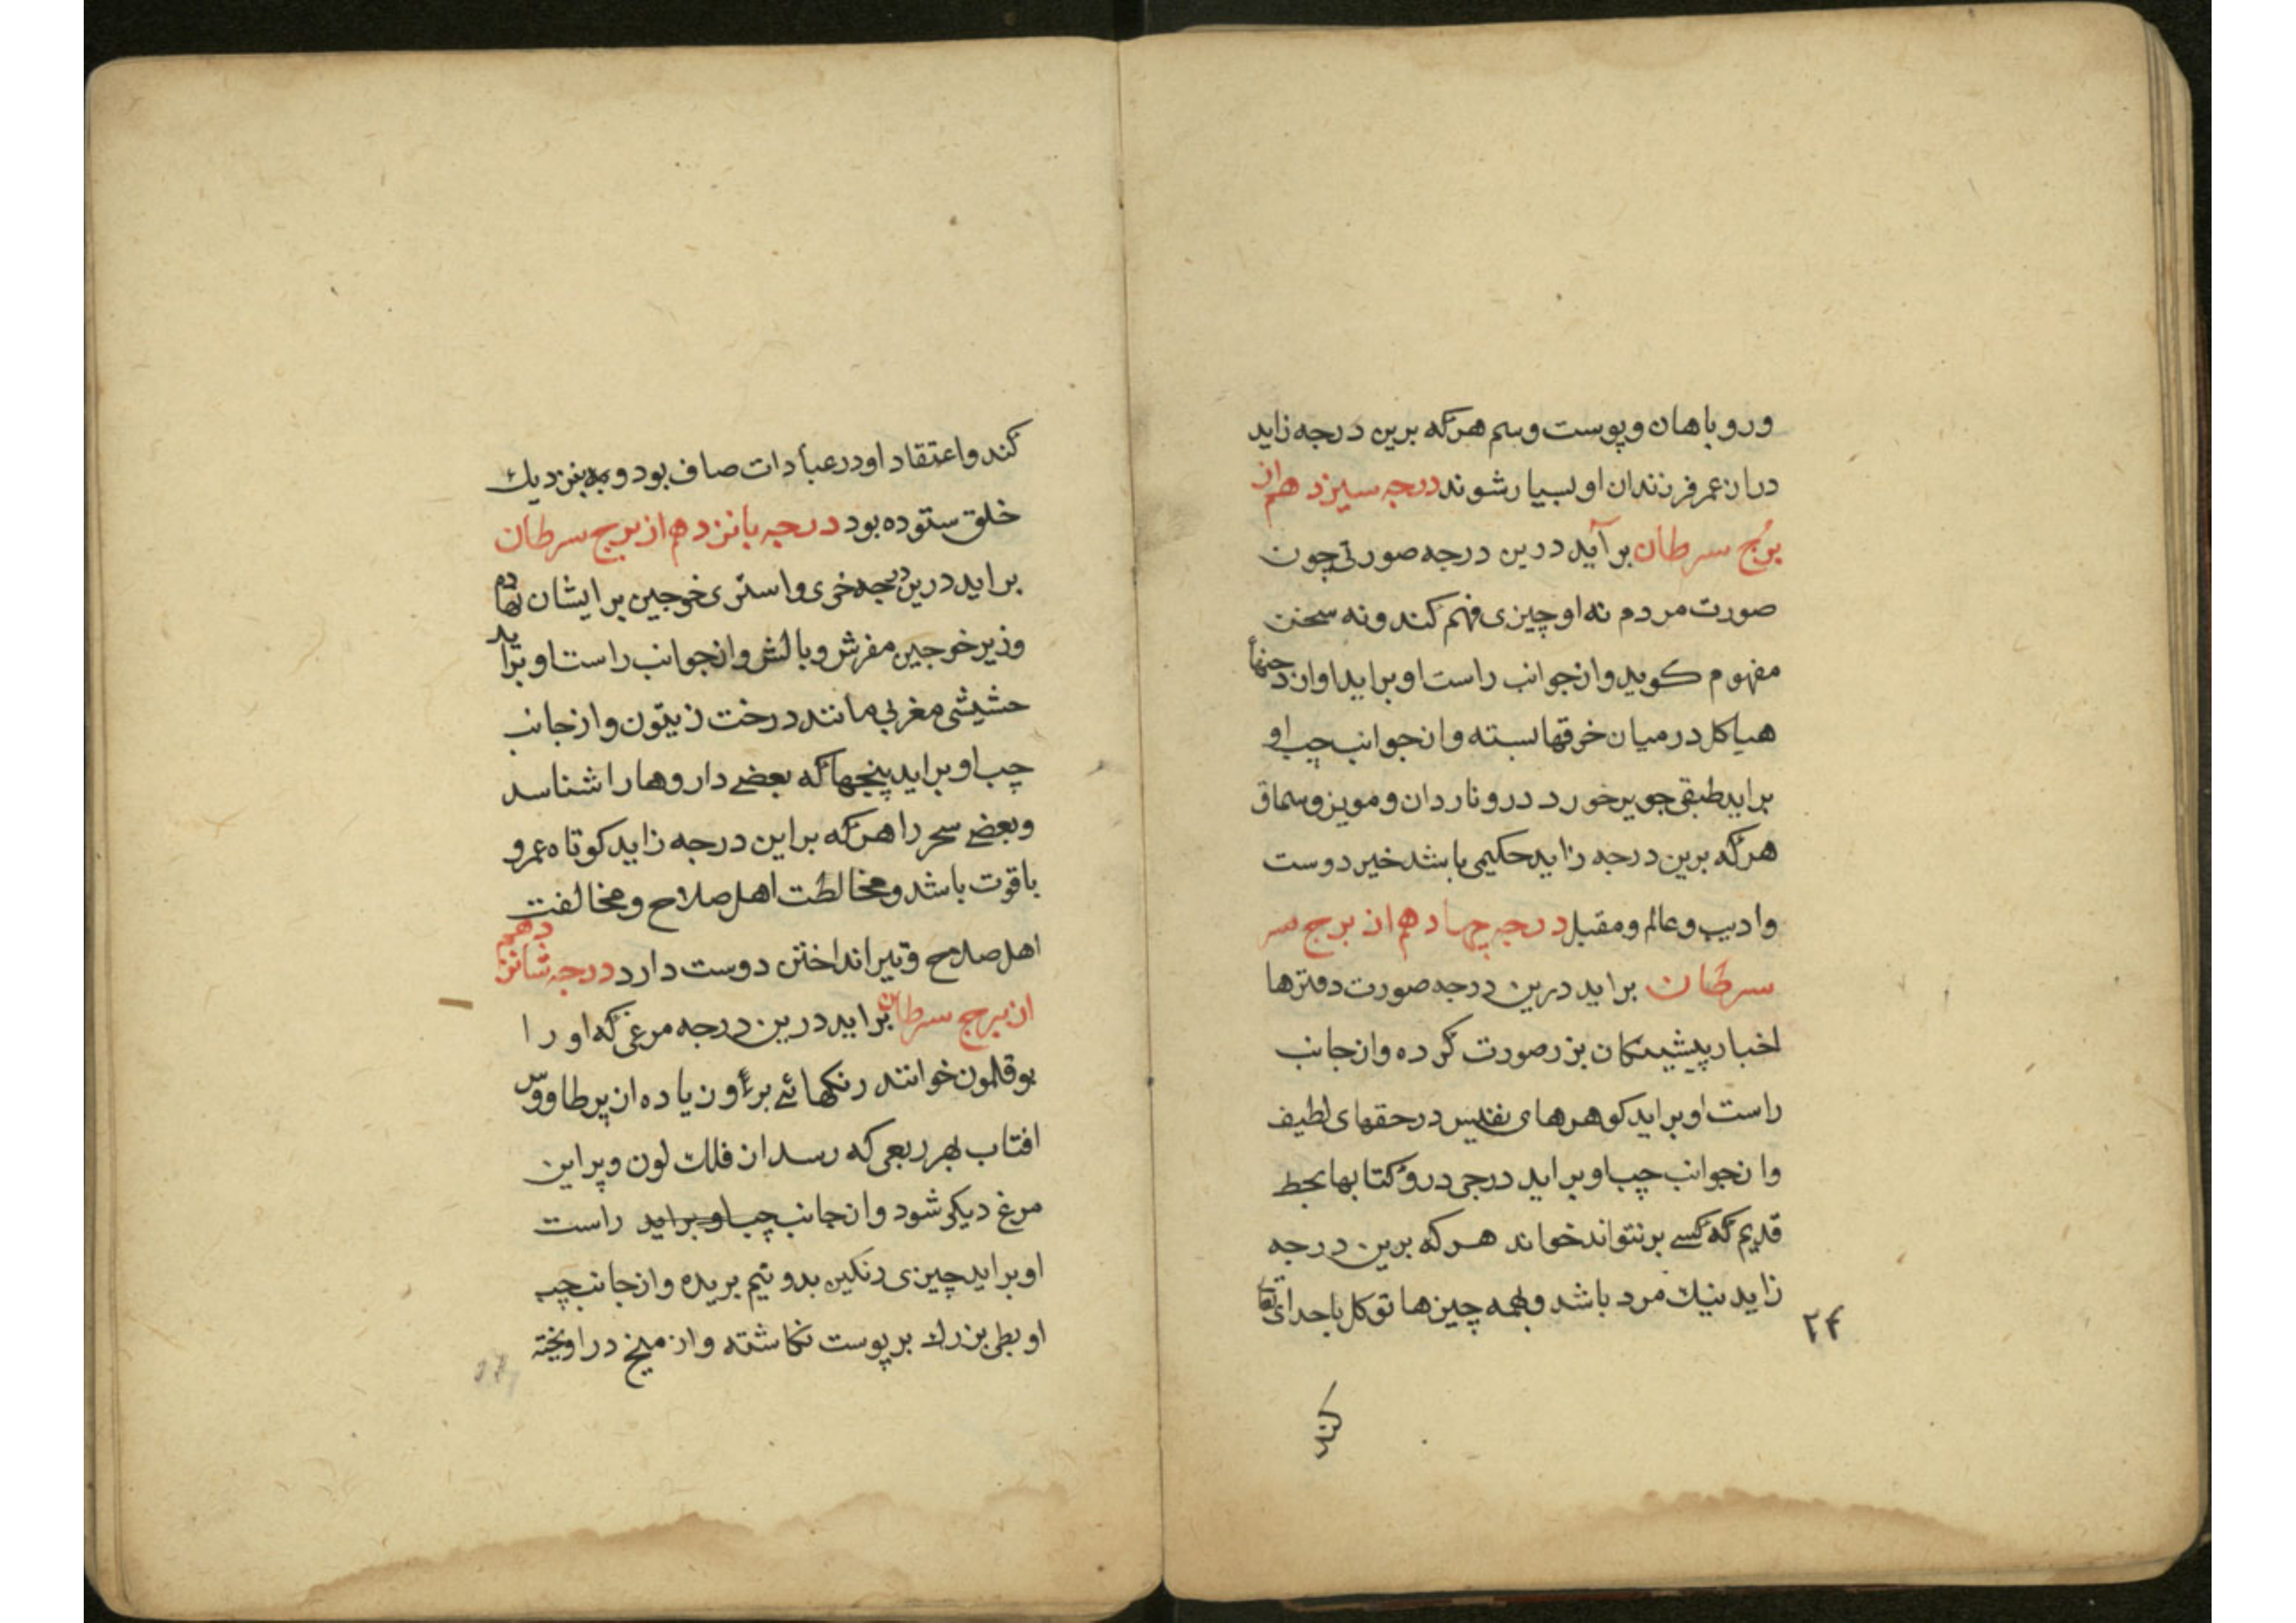 وروباهان وپوست وسم هرکه برین درجه زاید
دران عمر فرزندان او بسیار شوند درجه سیزدهم از
برُج سرطان برآید درین درجه صورتی چون
صورت مردم نه او چیزی فهم کند ونه سخن
مفهوم کوید وازجوانب راست او براید اوان
هیاکل درمیان خرقها بسته وازجوانب چپ او
براید طبقی چوبر خورد درو ناردان ومویز وسماق
هرکه برین درجه زاید حکیمی باشد خیر دوست
وادیب وعالم ومقبل درجه چهادهم از برج سر
سرطان براید درین درجه صورت دفترها
اخبار پیشینکان بزر صورت کرده وازجانب
راست او براید کوهرهای نفیس درحقهای لطیف
وازجوانب چپ او براید درجی درو کتابها بخط
قدیم که کسے برنتواند خواند هرکه برین درجه
زاید نیك مرد باشد وبهمه چیزها توکل باخدای تعا
۲۴
کند
کند واعتقاد او درعبادات صاف بود وبه بنزدیك
خلق ستوده بود درجه بانزدهم از برج سرطان
براید درین درجه خری واستری خوجین برایشان بهادم
وزیر خوجین مفرش وبالش وازجوانب راست او براید
حشیشی مغربی مانند درخت زیتون وازجانب
چپ او براید پنجها که بعضے داروها را شناسد
وبعضے سحر را هرکه براین درجه زاید کوتاه عمر و
باقوت باشد ومخالطت اهل صلاح ومخالفت
اهل صلاح وتیر انداختن دوست دارد درجه شانزدهم
از برج سرطان براید درین درجه مرغی که او را
بوقلمون خوانند رنکهائے برو زیاده از پر طاووس
افتاب بهر ربعی که رسد از فلك لون وپر این
مرغ دیکر شود وازجانب چپ او براید راست
او براید چیزی رنکین بدو نیم بریده وازجانب چپ
او بطی بزرك بر پوست نکاشته واز میخ دراویخته